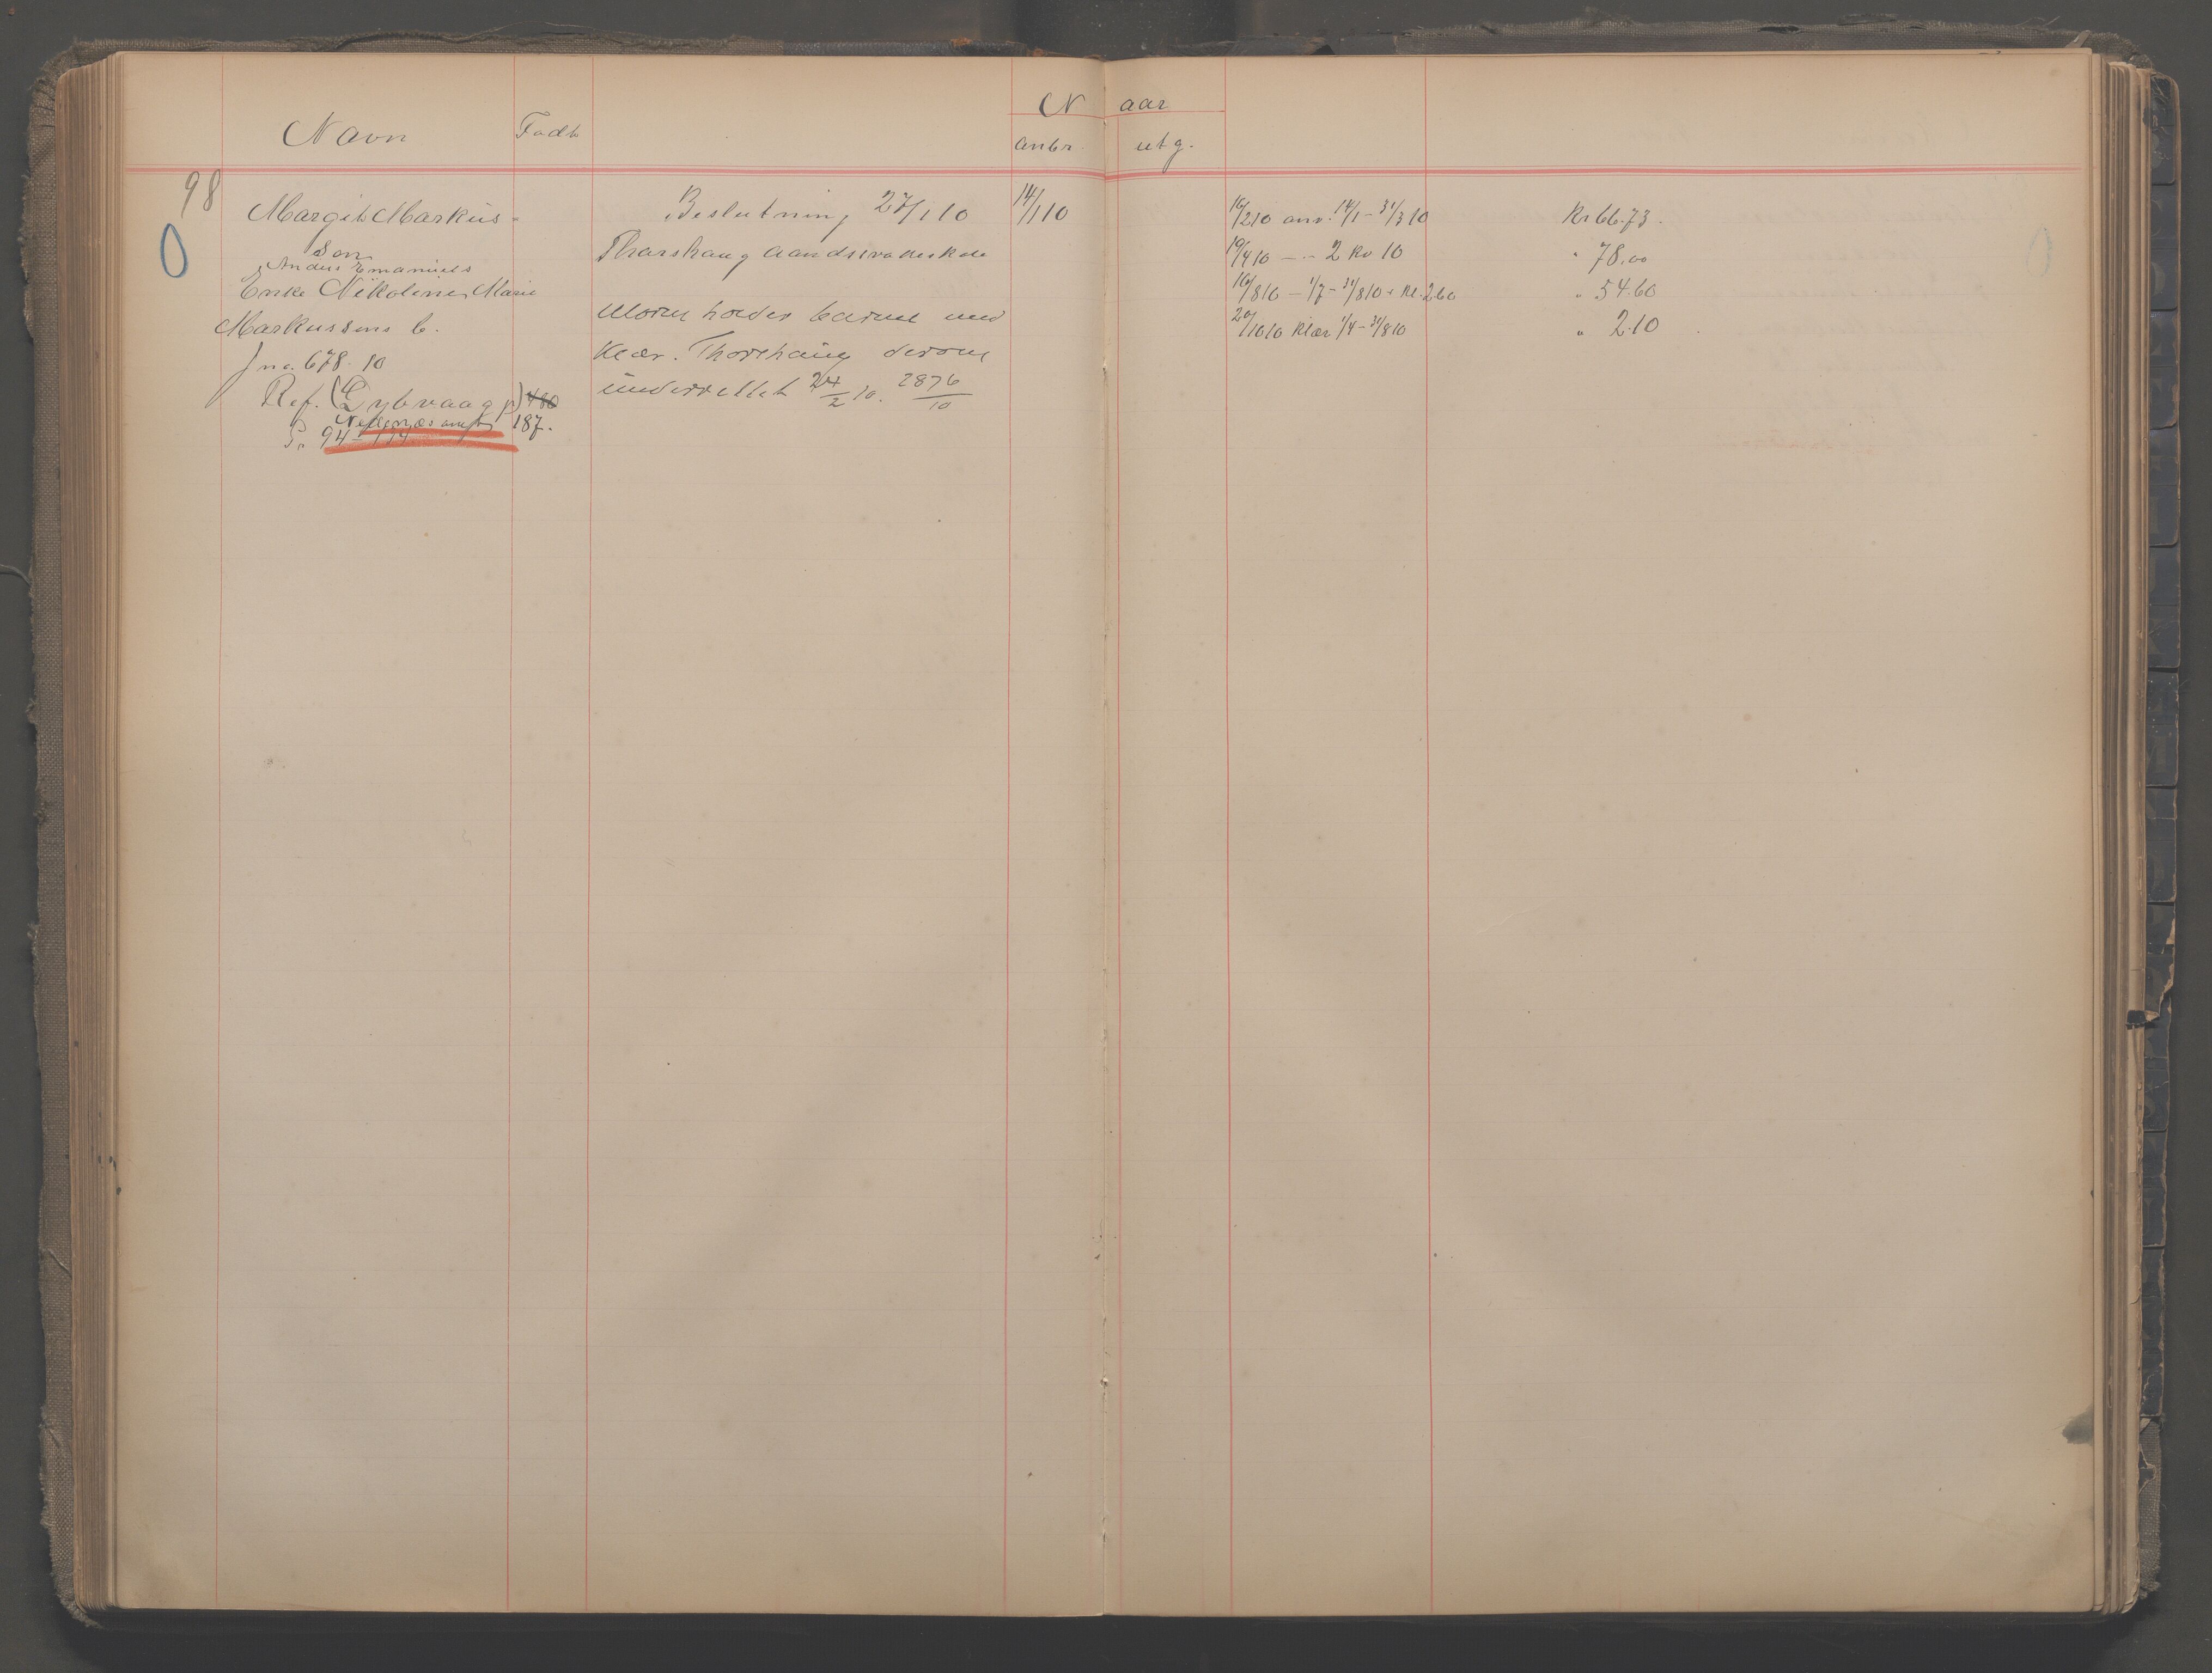 Navn
Født
N aar
anbr.
utg.
98
Margit Markus-
son
0
Anders Emanuels
Enke Nikoline Marie
Markussens b.
Jno. 678. 10
Ref. (Dybvaag p) 480
Nedenæs amt) 187.
Pr. 94 - 114
Beslutning 27/1 10
Thorshaug aandssvakeskole
Moren holder barnet med
klær. Thorshaug derom
underrettet 24/2 10. 2876/10
14/1 10
16/2 10 anv. 14/1 - 31/3 10 Kr 66.73.
19/4 10 — - 2 Kv 10 " 78.00
16/8 10 — 1/7 - 31/8 10 + Kl. 2.60 " 54.60
20/10 10 Klær 1/4 - 31/8 10 " 2.10